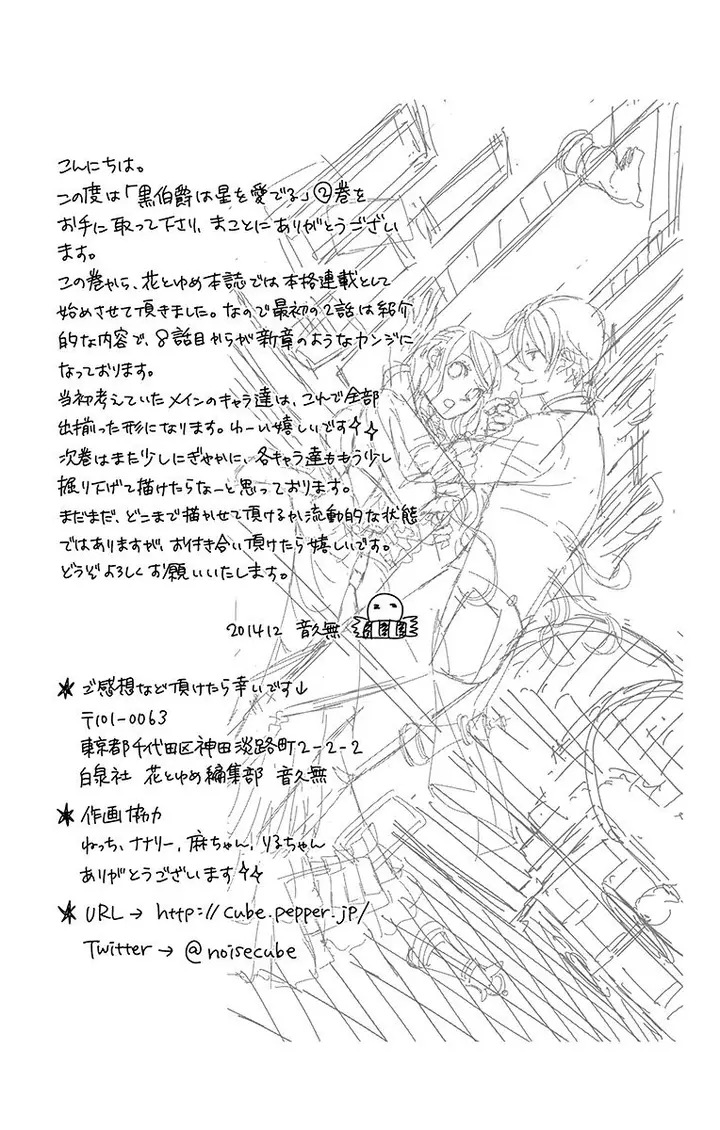 こんにちは。
この度は「黒伯爵は星を愛でる」②巻を
お手に取って下さり、まことにありがとうござい
ます。
この巻から、花とゆめ本誌では本格連載として
始めさせて頂きました。なので最初の2話は紹介
的な内容で、8話目からが新章のようなカンジに
なっております。
当初考えていたメインのキャラ達は、これで全部
出揃った形になります。わーい嬉しいです☆☆
次巻はまた少しにぎやかに、各キャラ達ももう少し
掘り下げて描けたらなーと思っております。
まだまだ、どこまで描かせて頂けるか流動的な状態
ではありますが、お付き合い頂けたら嬉しいです。
どうぞよろしくお願いいたします。
2014.12 音久無
★ご感想など頂けたら幸いです↓
〒101-0063
東京都千代田区神田淡路町2-2-2
白泉社 花とゆめ編集部 音久無
★作画協力
ねっち、ナナリー、麻ちゃん、りるちゃん
ありがとうございます☆☆
★URL→ http://cube.pepper.jp/
Twitter→ @noisecube